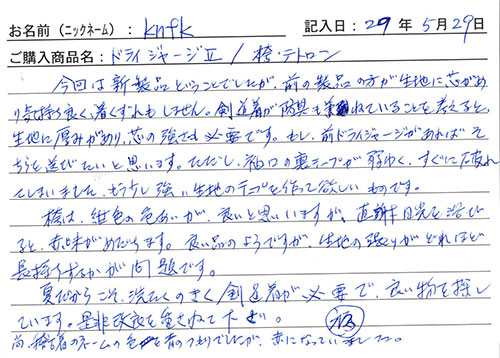 お名前(ニックネーム): knfk 記入日: 29年5月29日
ご購入商品名: ドライジャージⅡ / 袴・テトロン
今回は新製品ということでしたが、前の製品の方が生地に芯があ
り気持ち良く、着くずれもしません。剣道着が防具も兼ねていることを考えると、
生地に厚みがあり、芯の強さも必要です。もし、前ドライジャージがあればそ
ちらを選びたいと思います。ただし、袖口の裏テープが弱く、すぐに破れ
てしまいました。もう少し強い生地のテープを作って欲しいものです。
袴は、紺色の色あいが、良いと思いますが、直射日光を浴び
ると、赤味がめだちます。良い品のようですが、生地の張りがどれほど
長持ちするかが問題です。
夏だからこそ、洗たくのきく剣道着が必要で、良い物を探し
ています。是非改良を重ねて下さい。
尚、袴のネームの色を青のつもりでしたが、赤になっていました。